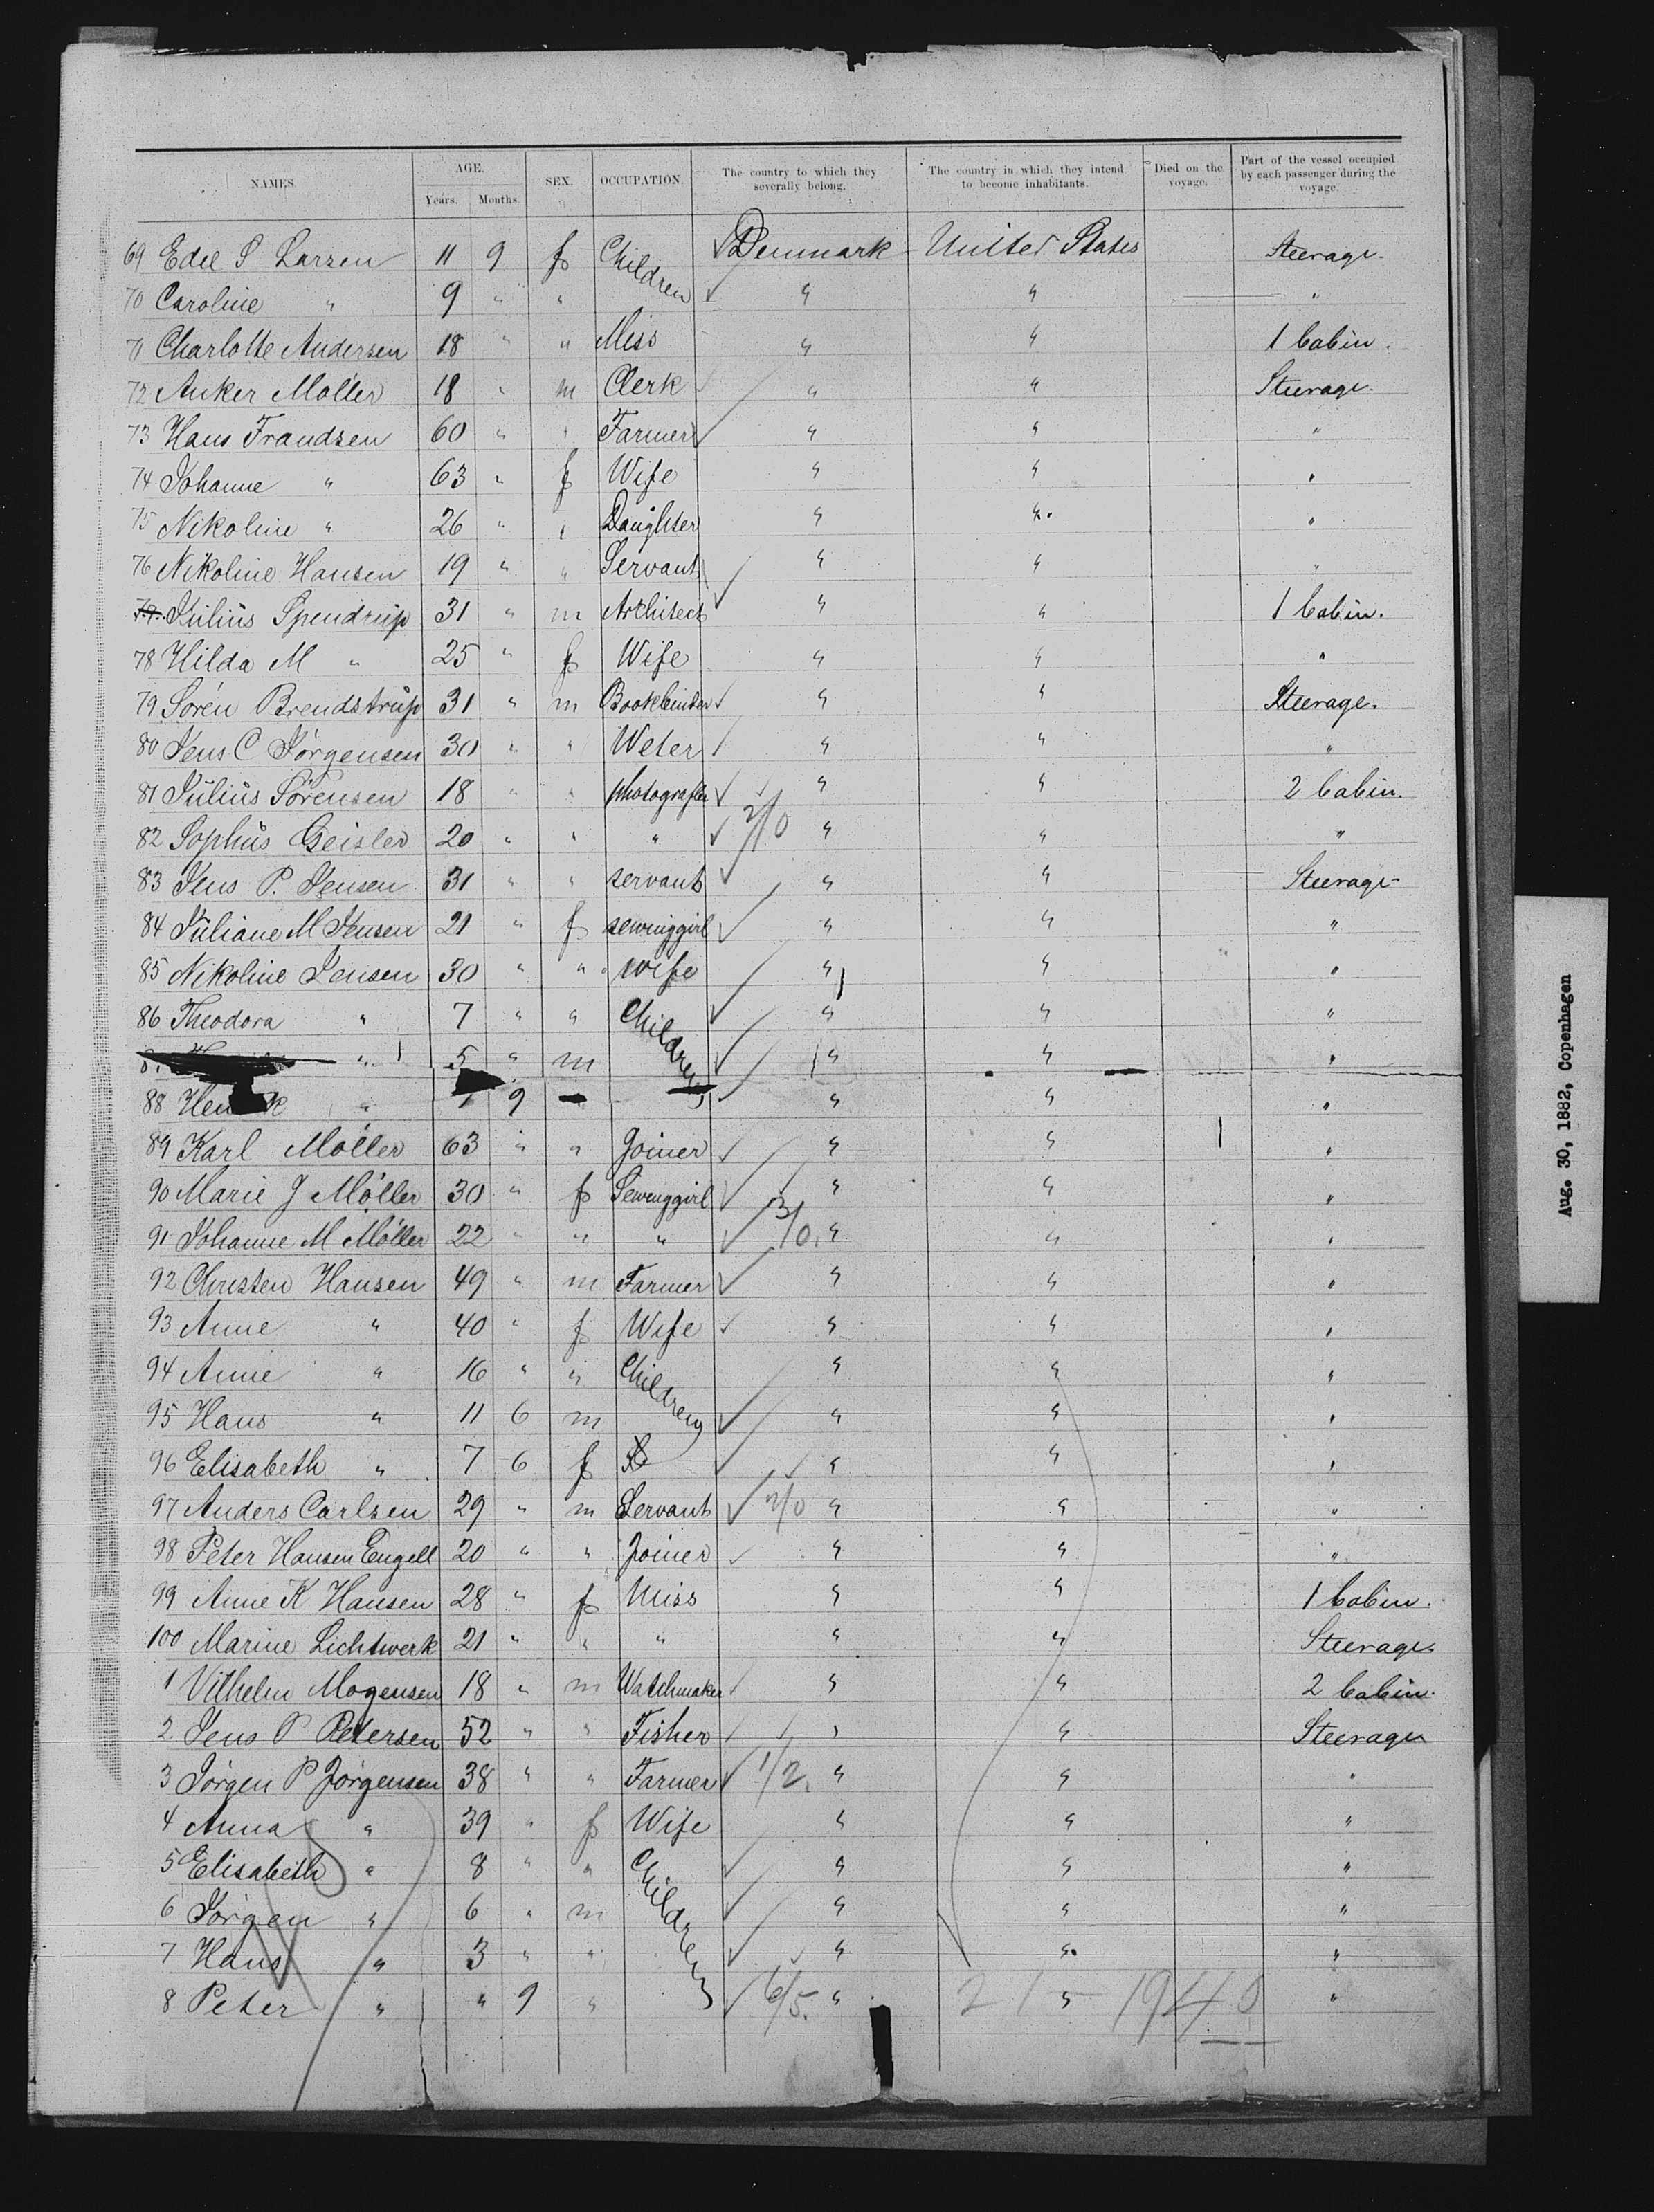 NAMES. AGE. SEX. OCCUPATION. The country to which they severally belong. The country in which they intend to become inhabitants. Died on the voyage. Part of the vessel occupied by each passenger during the voyage.
Years. Months.
69 Edel S Larsen 11 9 f Children Denmark United States Steerage.
70 Caroline " 9 " " " " "
71 Charlotte Andersen 18 " " Miss " " 1 Cabin.
72 Anker Möller 18 " m Clerk " " Steerage.
73 Hans Frandsen 60 " " Farmer " " "
74 Johanne " 63 " f Wife " " "
75 Nikoline " 26 " " Daughter " " "
76 Nikoline Hansen 19 " " Servant " " "
77 Julius Spendrup 31 " m Architect " " 1 Cabin.
78 Hilda M " 25 " f Wife " " "
79 Sören Brendstrup 31 " m Bookbinder " " Steerage.
80 Jens C Jörgensen 30 " " Weter " " "
81 Julius Sörensen 18 " " photografer " " 2 Cabin.
82 Sophus Geisler 20 " " " 2/0 " " "
83 Jens P. Jensen 31 " " servant " " Steerage
84 Juliane M Jensen 21 " f sewinggirl " " "
85 Nikoline Jensen 30 " " wife " " "
86 Theodora " 7 " " Children " " "
" 5 " m " " "
88 " 9 " " "
89 Karl Möller 63 " " Joiner " " "
90 Marie J Möller 30 " f Sewinggirl " " "
91 Johanne M Möller 22 " " " 3/0. " " "
92 Christen Hansen 49 " m Farmer " " "
93 Anne " 40 " f Wife " " "
94 Anne " 16 " " Children " " "
95 Hans " 11 6 m " " "
96 Elisabeth " 7 6 f " " "
97 Anders Carlsen 29 " m Servant 7/0 " " "
98 Peter Hansen Engell 20 " " Joiner " " "
99 Anne K Hansen 28 " f Miss " " 1 Cabin.
100 Marine Lichtwerk 21 " " " " " Steerage.
1 Vilhelm Mogensen 18 " m Watchmaker " " 2 Cabin.
2 Jens P Petersen 52 " " Fisher " " Steerage
3 Jörgen P Jörgensen 38 " " Farmer 1/2. " " "
4 Anna " 39 " f Wife " " "
5 Elisabeth " 8 " " Children " " "
6 Jörgen " 6 " m " " "
7 Hans " 3 " " " " "
8 Peter " " 9 " 6/5. " " "
Aug. 30, 1882, Copenhagen